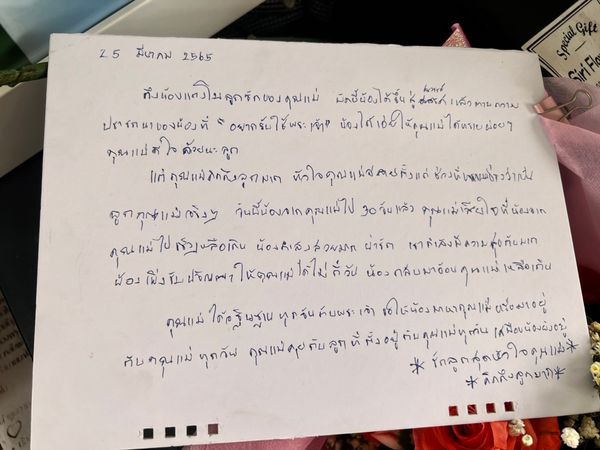 25 มีนาคม 2565
ถึงน้องแตงโม ลูกรักของคุณแม่ บัดนี้น้องได้ขึ้นสู่สวรรค์ แล้วตามความ
ปรารถนาของน้องที่ "อยากรับใช้พระเจ้า" น้องได้ให้คุณแม่ได้หลายบ่อยๆ
คุณแม่ดีใจด้วยนะลูก
แต่คุณแม่คิดถึงลูกมาก หัวใจคุณแม่สลายตั้งแต่
ลูกคุณแม่จริงๆ วันนี้น้องจากคุณแม่ไป 30 วันแล้ว คุณแม่เสียใจที่น้องจาก
คุณแม่ไปเร็วเหลือเกิน น้องกำลังสวยมาก น่ารัก เรากำลังมีความสุขกันมาก
น้องเพิ่งรับปริญญาให้คุณแม่ได้ไม่กี่วัน น้องกลับมาอ้อนคุณแม่เหลือเกิน
คุณแม่ได้อธิษฐานทุกวันกับพระเจ้า ขอให้น้องมาหาคุณแม่หรือมาอยู่
กับคุณแม่ทุกวัน คุณแม่คุยกับลูกที่ยังอยู่กับคุณแม่ทุกวัน เหมือนน้องยังอยู่
* รักลูกสุดหัวใจคุณแม่ *
* คิดถึงลูกมาก *
Special Gift
Siri Flo